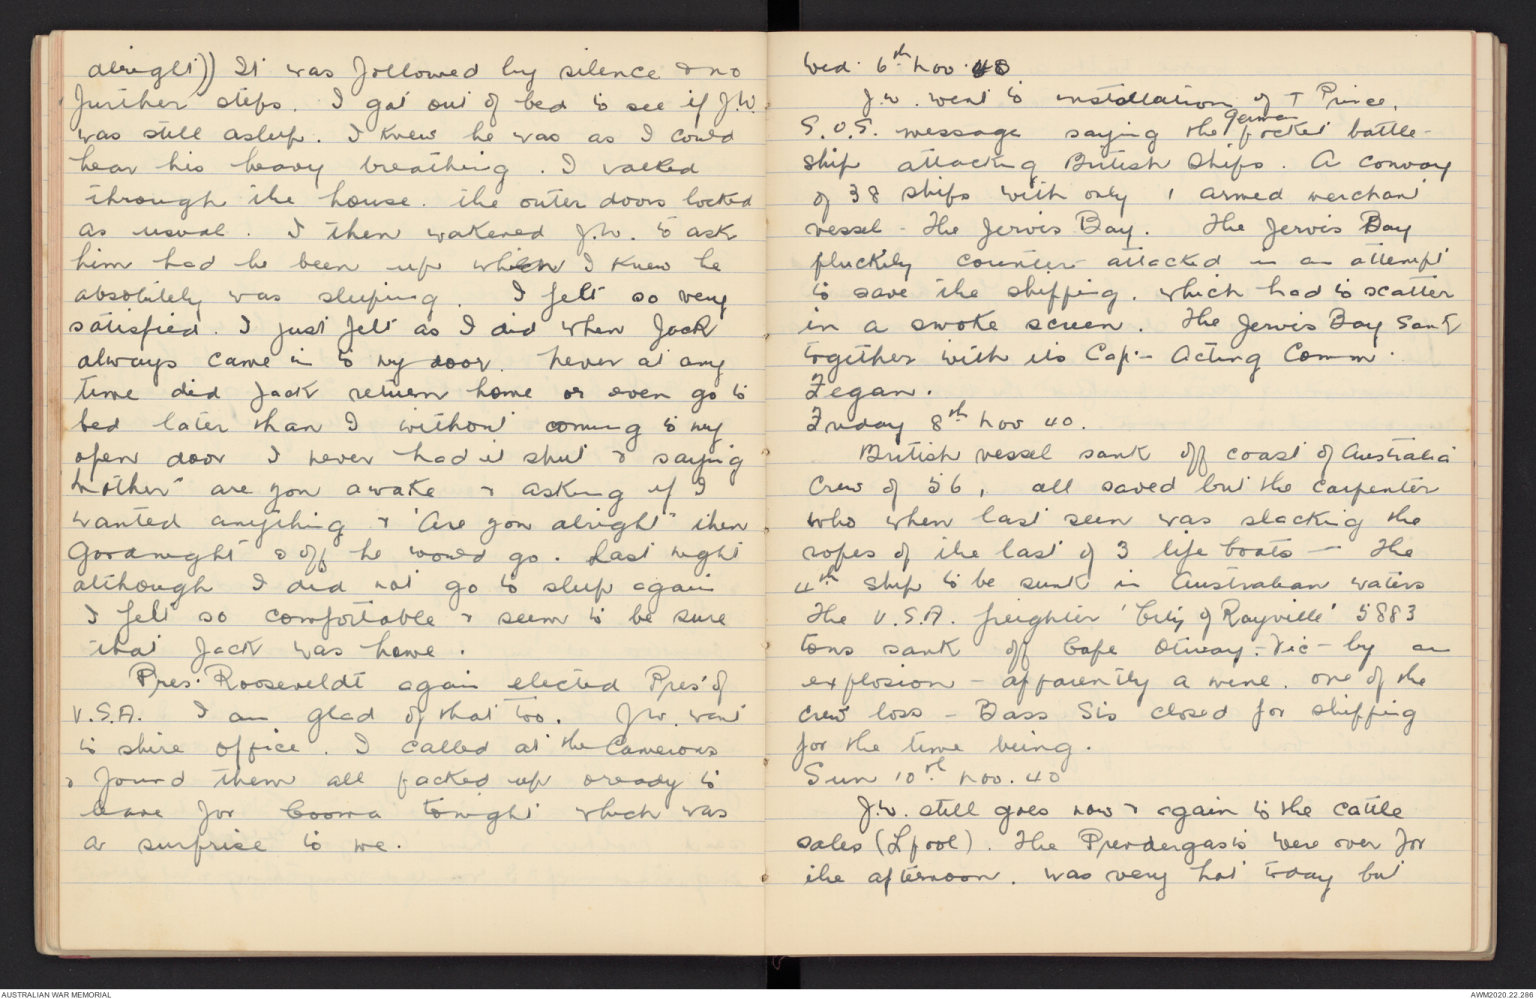 alright)) It was followed by silence & no
further steps. I got out of bed to see if J.W.
was still asleep. I knew he was as I could
hear his heavy breathing. I walked
through the house. the outer doors locked
as usual. I then wakened J.W. to ask
him had he been up which I knew he
absolutely was sleeping. I felt so very
satisfied. I just felt as I did when Jack
always came in to my door. Never at any
time did Jack return home or even go to
bed later than I without coming to my
open door I never had it shut & saying
Mother" are you awake & asking if I
wanted anything & "Are you alright" then
Goodnight & off he would go. Last night
although I did not go to sleep again
I felt so comfortable & seem to be sure
that Jack was home.
Pres: Rooseveldt again elected Pres' of
U.S.A. I am glad of that too. J.W. went
to shire office. I called at the Camerons
& found them all packed up ready to
leave for Cooma tonight which was
a surprise to me.
Wed. 6th Nov. 40
J.W. went to installation of T Prince.
S.O.S. message saying the German pocket battle-
ship attacking British Ships. A convoy
of 38 ships with only 1 armed merchant
vessel - The Jervis Bay. The Jervis Bay
pluckily counter attacked in an attempt
to save the shipping. which had to scatter
in a smoke screen. The Jervis Bay sank
together with its Cap:- Acting Comm.
Fegan.
Friday 8th Nov 40.
British vessel sank off coast of Australia
Crew of 56, all saved but the carpenter
who when last seen was slacking the
ropes of the last of 3 life boats — The
4th ship to be sunk in Australian waters
The U.S.A. freighter 'City of Rayville' 5883
tons sank off Cape Otway - Vic - by an
explosion - apparently a mine. one of the
crew loss - Bass Sts closed for shipping
for the time being.
Sun 10th Nov. 40
J.W. still goes now & again to the cattle
sales (Lpool). The Prendergasts were over for
the afternoon. Was very hot today but
AUSTRALIAN WAR MEMORIAL
AWM2020.22.286